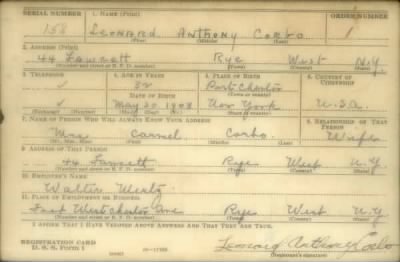 SERIAL NUMBER 1. NAME (Print) ORDER NUMBER
158 LEONARD ANTHONY CORBO
(First) (Middle) (Last)
2. ADDRESS (Print)
44 Fawcett Rye West N.Y.
(Number and street or R. F. D. number) (Town) (County) (State)
3. TELEPHONE 4. AGE IN YEARS 5. PLACE OF BIRTH 6. COUNTRY OF CITIZENSHIP
32 Port Chester
DATE OF BIRTH
May 20 1908 New York U.S.A.
(Mo.) (Day) (Yr.) (State or country)
7. NAME OF PERSON WHO WILL ALWAYS KNOW YOUR ADDRESS 8. RELATIONSHIP OF THAT PERSON
Mrs Carmel Corbo Wife
(Mr., Mrs., Miss) (First) (Middle) (Last)
9. ADDRESS OF THAT PERSON
44 Fawcett Rye West N.Y.
(Number and street or R. F. D. number) (Town) (County) (State)
10. EMPLOYER'S NAME
Walter
11. PLACE OF EMPLOYMENT OR BUSINESS
West Chester Ave Rye West N.Y.
(Number and street or R. F. D. number) (Town) (County) (State)
I AFFIRM THAT I HAVE VERIFIED ABOVE ANSWERS AND THAT THEY ARE TRUE.
REGISTRATION CARD
D. S. S. Form 1 Leonard Anthony Corbo
(Registrant's signature)